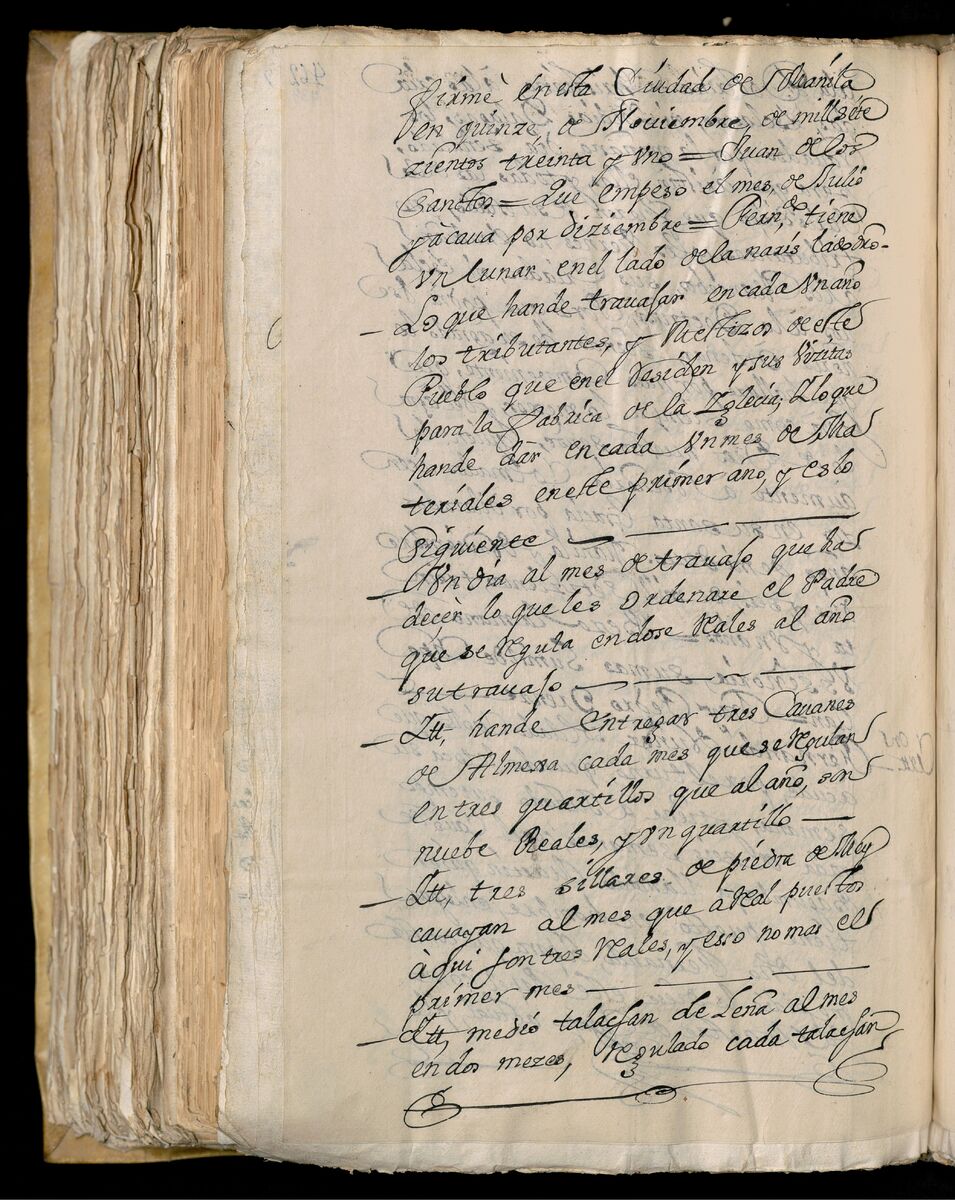 firmé en esta Ciudad de Manila
en quinze, de Noviembre, de mill sete
zientos treinta y uno = Juan de los
Sanctos = Que empesó el mes, de Julio
y àcava por diziembre = Fern,do tiene
un lunar en el lado de la naris
Lo que hande travajar en cada Un año
los tributantes, y Mestizos de este
Pueblo que en el Residen y sus Vizitas
para la fabrica de la Iglecia, Y lo que
hande dàr en cada Un mes de Ma
teriales en este primer año, y es lo
siguiente
Un dia al mes de travajo que ha
decèr lo que les ordenare el Padre
que se Regula en dose Reales al año
su travajo
Itt, hande entregar tres Cavanes
de Almexa cada mes que se Regulan
en tres quartillos que al año, son
nuebe Reales, y un quartillo
Itt, tres sillares de piedra de Mey
cauayan al mes que à Real puestos
àqui son tres Reales, y esso no mas el
primer mes
Itt, medio talacsan de Leña al mes
en dos mezes, Regulado cada talacsàn